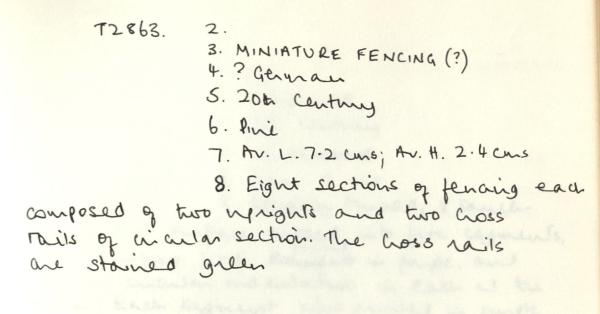 T2863. 2.
3. MINIATURE FENCING (?)
4. ? German
5. 20th Century
6. Pine
7. Av. L. 7.2 cms; Av. H. 2.4 cms
8. Eight sections of fencing each
composed of two uprights and two cross
rails of circular section. The cross rails
are stained green